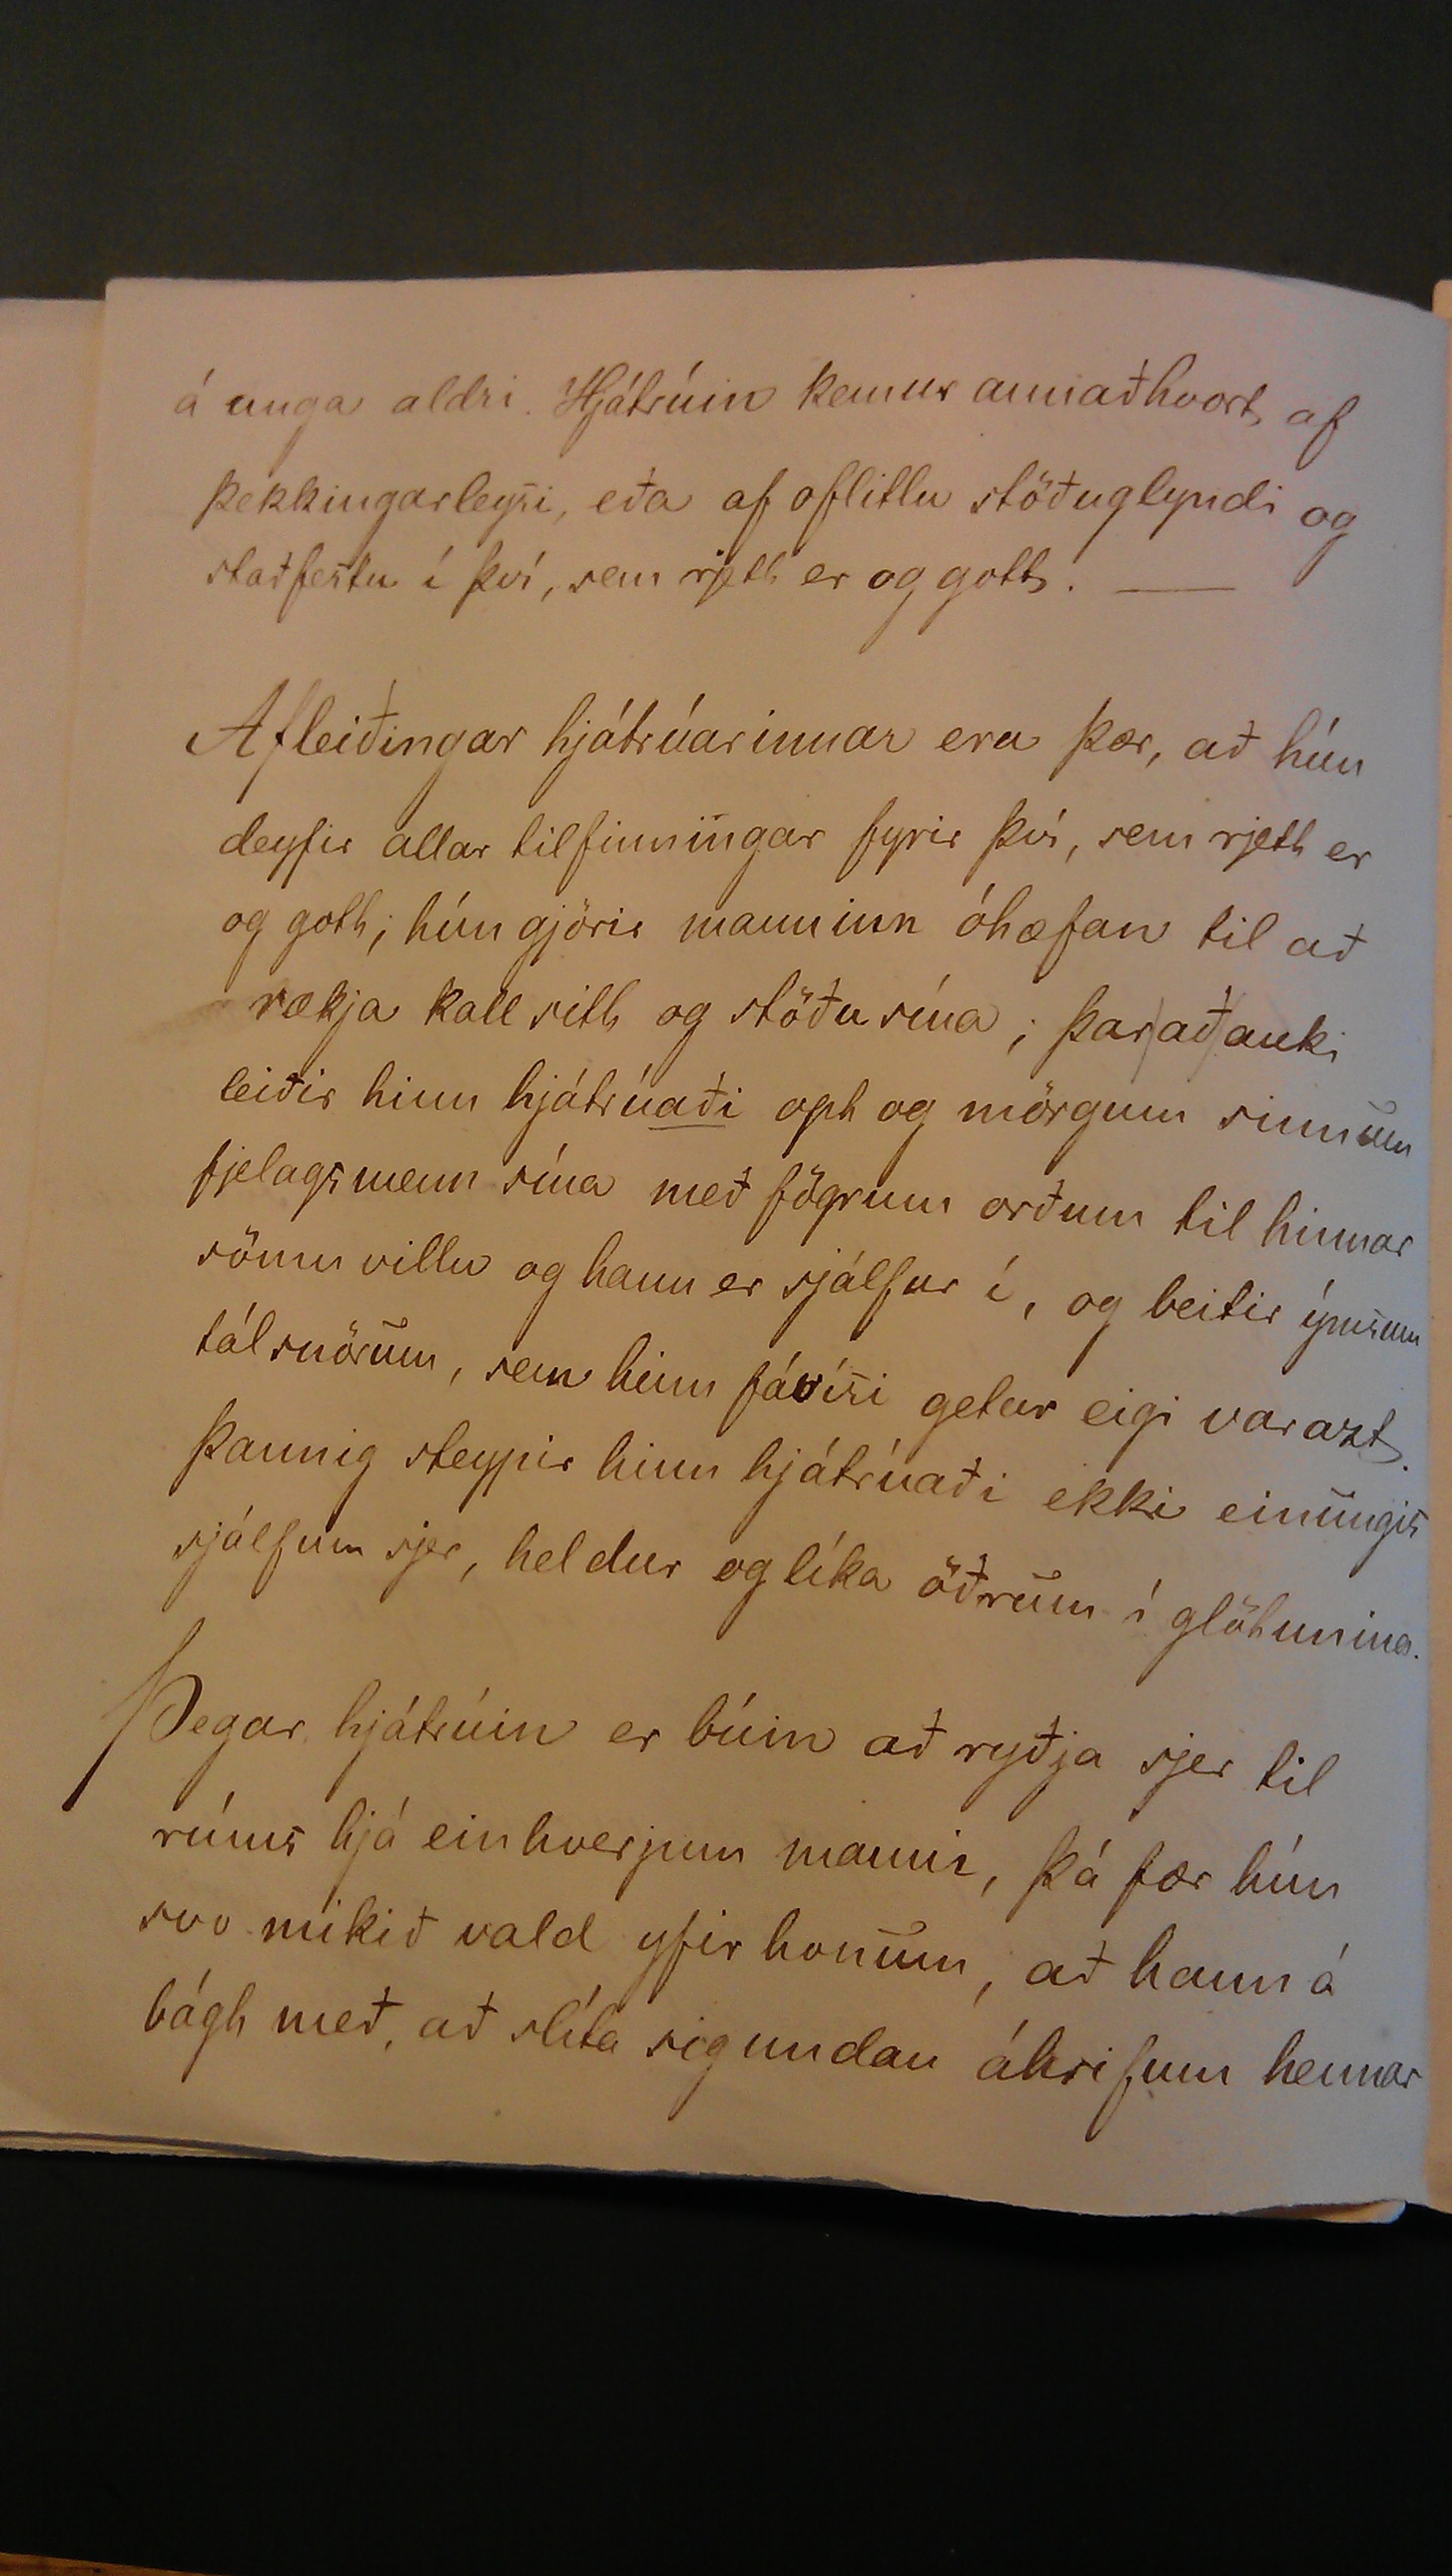 á unga aldri. Hjátrúin kemur annaðhvort af
þekkingarleysi, eða af oflitlu stöðuglyndi og
staðfestu í því, sem rjett er og gott. —
Afleiðingar hjátrúarinnar eru þær, að hún
deyfir allar tilfinningar fyrir því, sem rjett er
og gott; hún gjörir manninn óhæfan til að
rækja kall sitt og stöðu sína; þar að auki
leiðir hinn hjátrúaði opt og mörgum sinnum
fjelagsmenn sína með fögrum orðum til hinnar
sömu villu og hann er sjálfur í, og beitir ýmsum
tálsnörum, sem hinn fávísi getur eigi varazt.
Þannig steypir hinn hjátrúaði ekki einungis
sjálfum sjer, heldur og líka öðrum í glötunina.
Þegar hjátrúin er búin að ryðja sjer til
rúms hjá einhverjum manni, þá fær hún
svo mikið vald yfir honum, að hann á
bágt með, að slíta sig undan áhrifum hennar